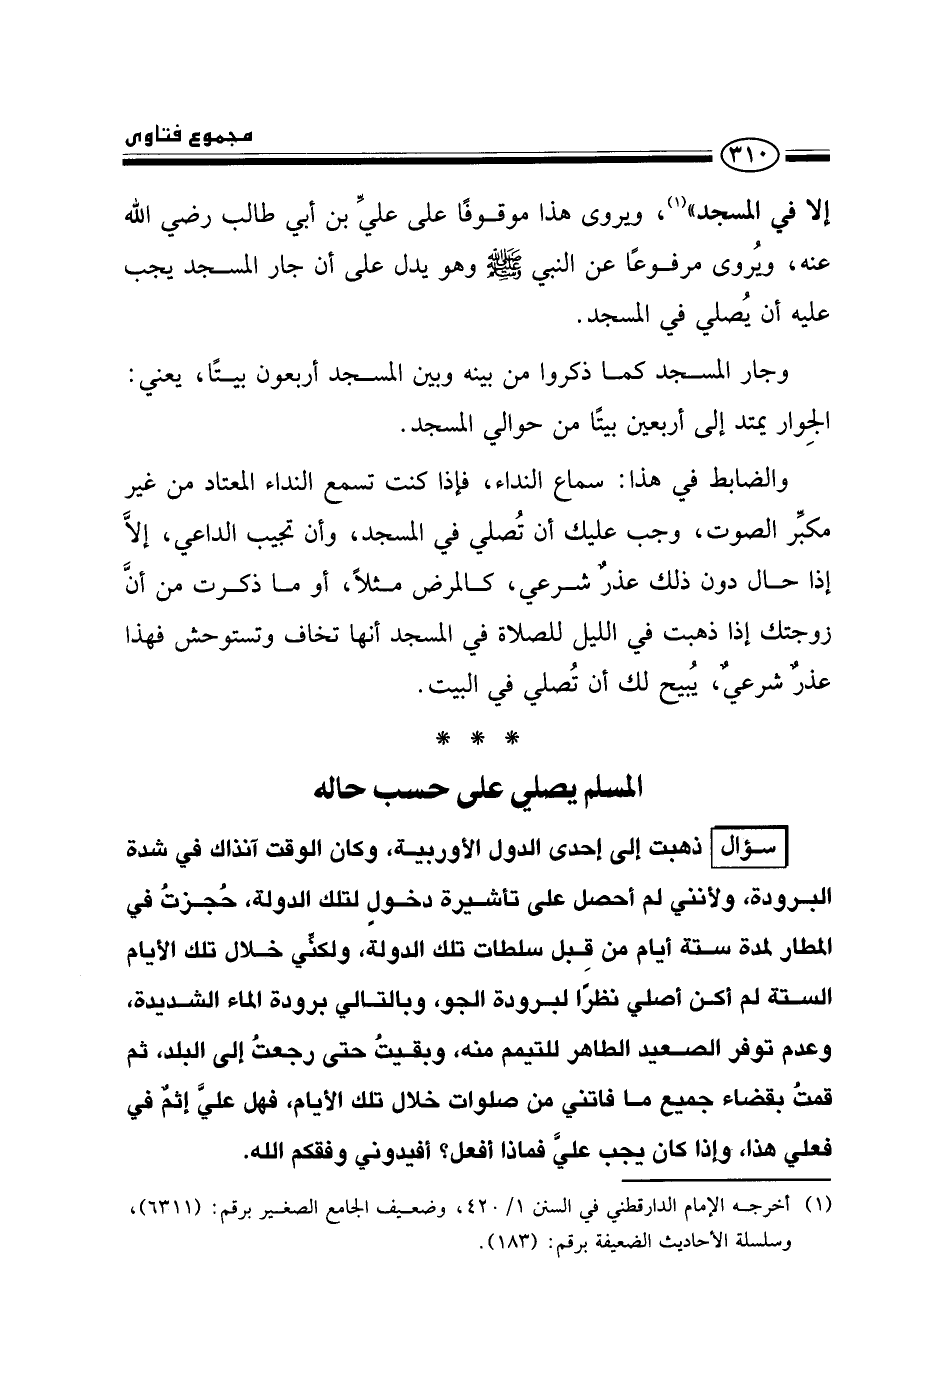 مجموع فتاوى
٣١٠
إلا في المسجد»(١)، ويروى هذا موقوفًا على عليِّ بن أبي طالب رضي الله
عنه، ويُروى مرفوعًا عن النبي ﷺ وهو يدل على أن جار المسجد يجب
عليه أن يُصلي في المسجد.
وجار المسجد كما ذكروا من بينه وبين المسجد أربعون بيتًا، يعني:
الجِوار يمتد إلى أربعين بيتًا من حوالي المسجد.
والضابط في هذا: سماع النداء، فإذا كنت تسمع النداء المعتاد من غير
مكبِّر الصوت، وجب عليك أن تُصلي في المسجد، وأن تجيب الداعي، إلاَّ
إذا حال دون ذلك عذرٌ شرعي، كالمرض مثلاً، أو ما ذكرت من أنَّ
زوجتك إذا ذهبت في الليل للصلاة في المسجد أنها تخاف وتستوحش فهذا
عذرٌ شرعيٌ، يُبيح لك أن تُصلي في البيت.
* * *
المسلم يصلي على حسب حاله
سؤال ذهبت إلى إحدى الدول الأوربية، وكان الوقت آنذاك في شدة
البرودة، ولأنني لم أحصل على تأشيرة دخولٍ لتلك الدولة، حُجزتُ في
المطار لمدة ستة أيام من قِبل سلطات تلك الدولة، ولكنِّي خلال تلك الأيام
الستة لم أكن أصلي نظرًا لبرودة الجو، وبالتالي برودة الماء الشديدة،
وعدم توفر الصعيد الطاهر للتيمم منه، وبقيتُ حتى رجعتُ إلى البلد، ثم
قمتُ بقضاء جميع ما فاتني من صلوات خلال تلك الأيام، فهل عليَّ إثمٌ في
فعلي هذا، وإذا كان يجب عليَّ فماذا أفعل؟ أفيدوني وفقكم الله.
(١) أخرجه الإمام الدارقطني في السنن ١/ ٤٢٠، وضعيف الجامع الصغير برقم: (٦٣١١)،
وسلسلة الأحاديث الضعيفة برقم: (١٨٣).